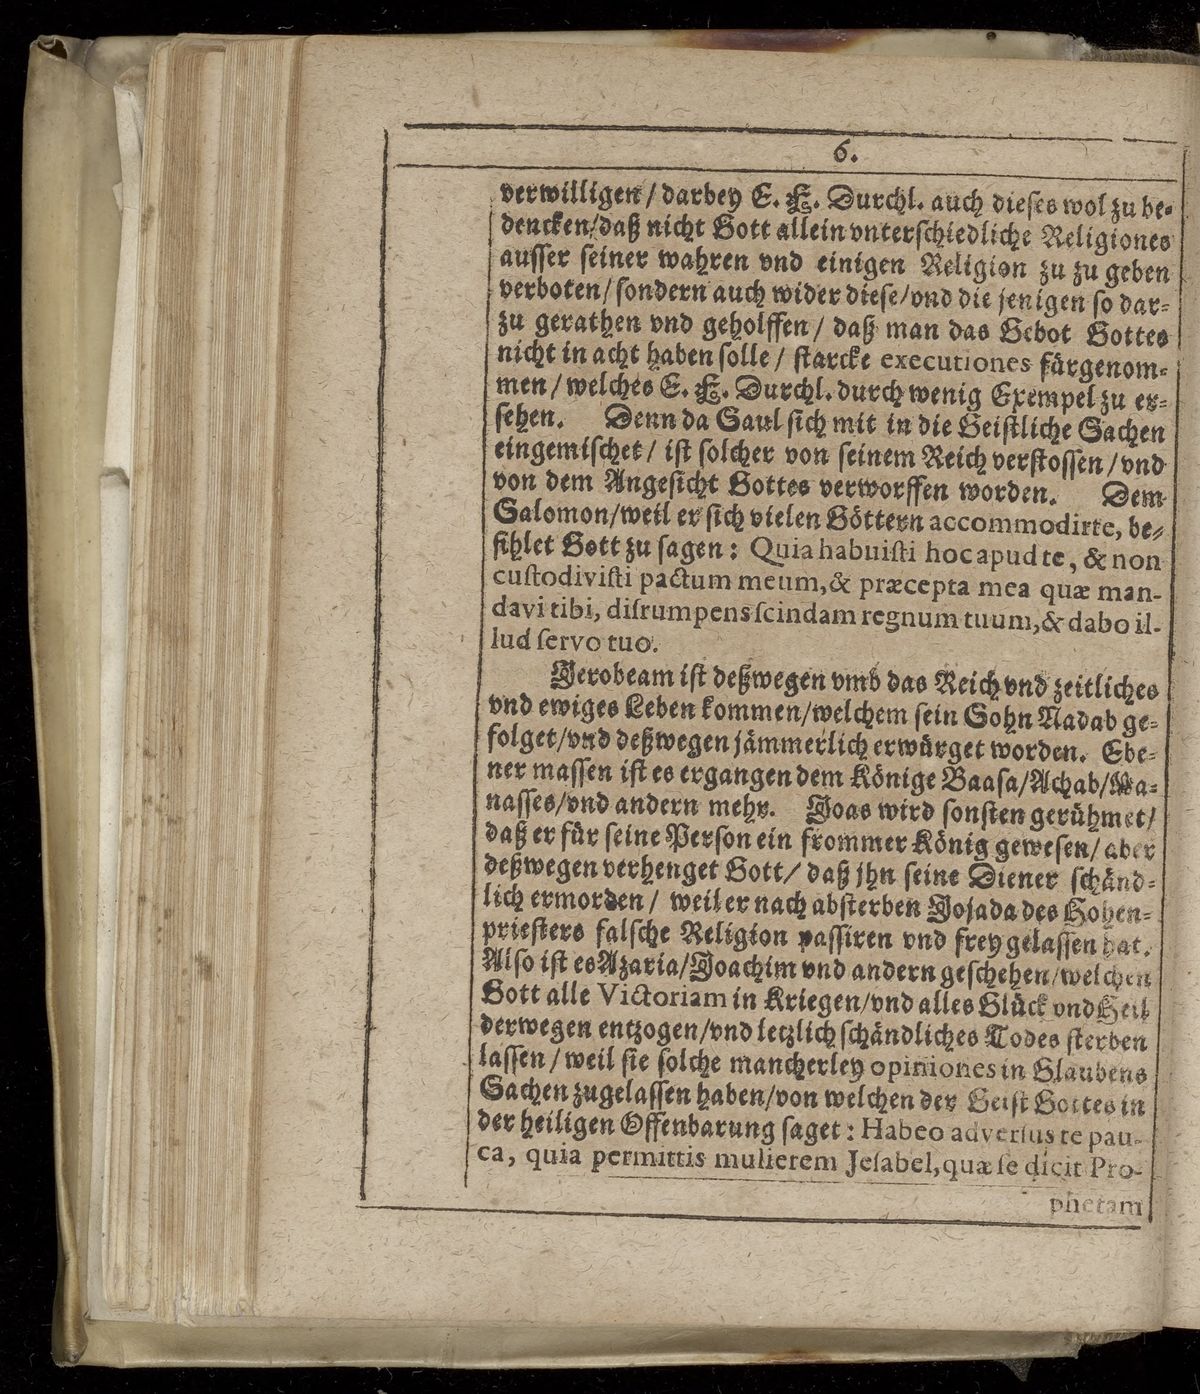 6.
verwilligen / darbey E. F. Durchl. auch dieses wol zu be-
dencken/daß nicht Gott allein vnterschiedliche Religiones
ausser seiner wahren vnd einigen Religion zu zu geben
verboten/ sondern auch wider diese/vnd die jenigen so dar-
zu gerathen vnd geholffen / daß man das Gebot Gottes
nicht in acht haben solle / starcke executiones fürgenom-
men / welches E. F. Durchl. durch wenig Exempel zu er-
sehen. Denn da Saul sich mit in die Geistliche Sachen
eingemischet / ist solcher von seinem Reich verstossen / vnd
von dem Angesicht Gottes verworffen worden. Dem
Salomon/weil er sich vielen Göttern accommodirte, be-
fihlet Gott zu sagen: Quia habuisti hoc apud te, & non
custodivisti pactum meum, & præcepta mea quæ man-
davi tibi, disrumpens scindam regnum tuum, & dabo il-
lud servo tuo.
Jerobeam ist deßwegen vmb das Reich vnd zeitliches
vnd ewiges Leben kommen/welchem sein Sohn Nadab ge-
folget/vnd deßwegen jämmerlich erwürget worden. Ebe-
ner massen ist es ergangen dem Könige Baasa/Achab/Ma-
nasses/vnd andern mehr. Joas wird sonsten gerühmet/
daß er für seine Person ein frommer König gewesen/ aber
deßwegen verhenget Gott/ daß jhn seine Diener schänd-
lich ermorden / weil er nach absterben Jojada des Hohen-
priesters falsche Religion passiren vnd frey gelassen hat.
Also ist es Azaria/Joachim vnd andern geschehen/welchen
Gott alle Victoriam in Kriegen/vnd alles Glück vnd Heil
derwegen entzogen/vnd letzlich schändliches Todes sterben
lassen / weil sie solche mancherley opiniones in Glaubens
Sachen zugelassen haben/von welchen der Geist Gottes in
der heiligen Offenbarung saget: Habeo adversus te pau-
ca, quia permittis mulierem Jesabel, quæ se dicit Pro-
phetam